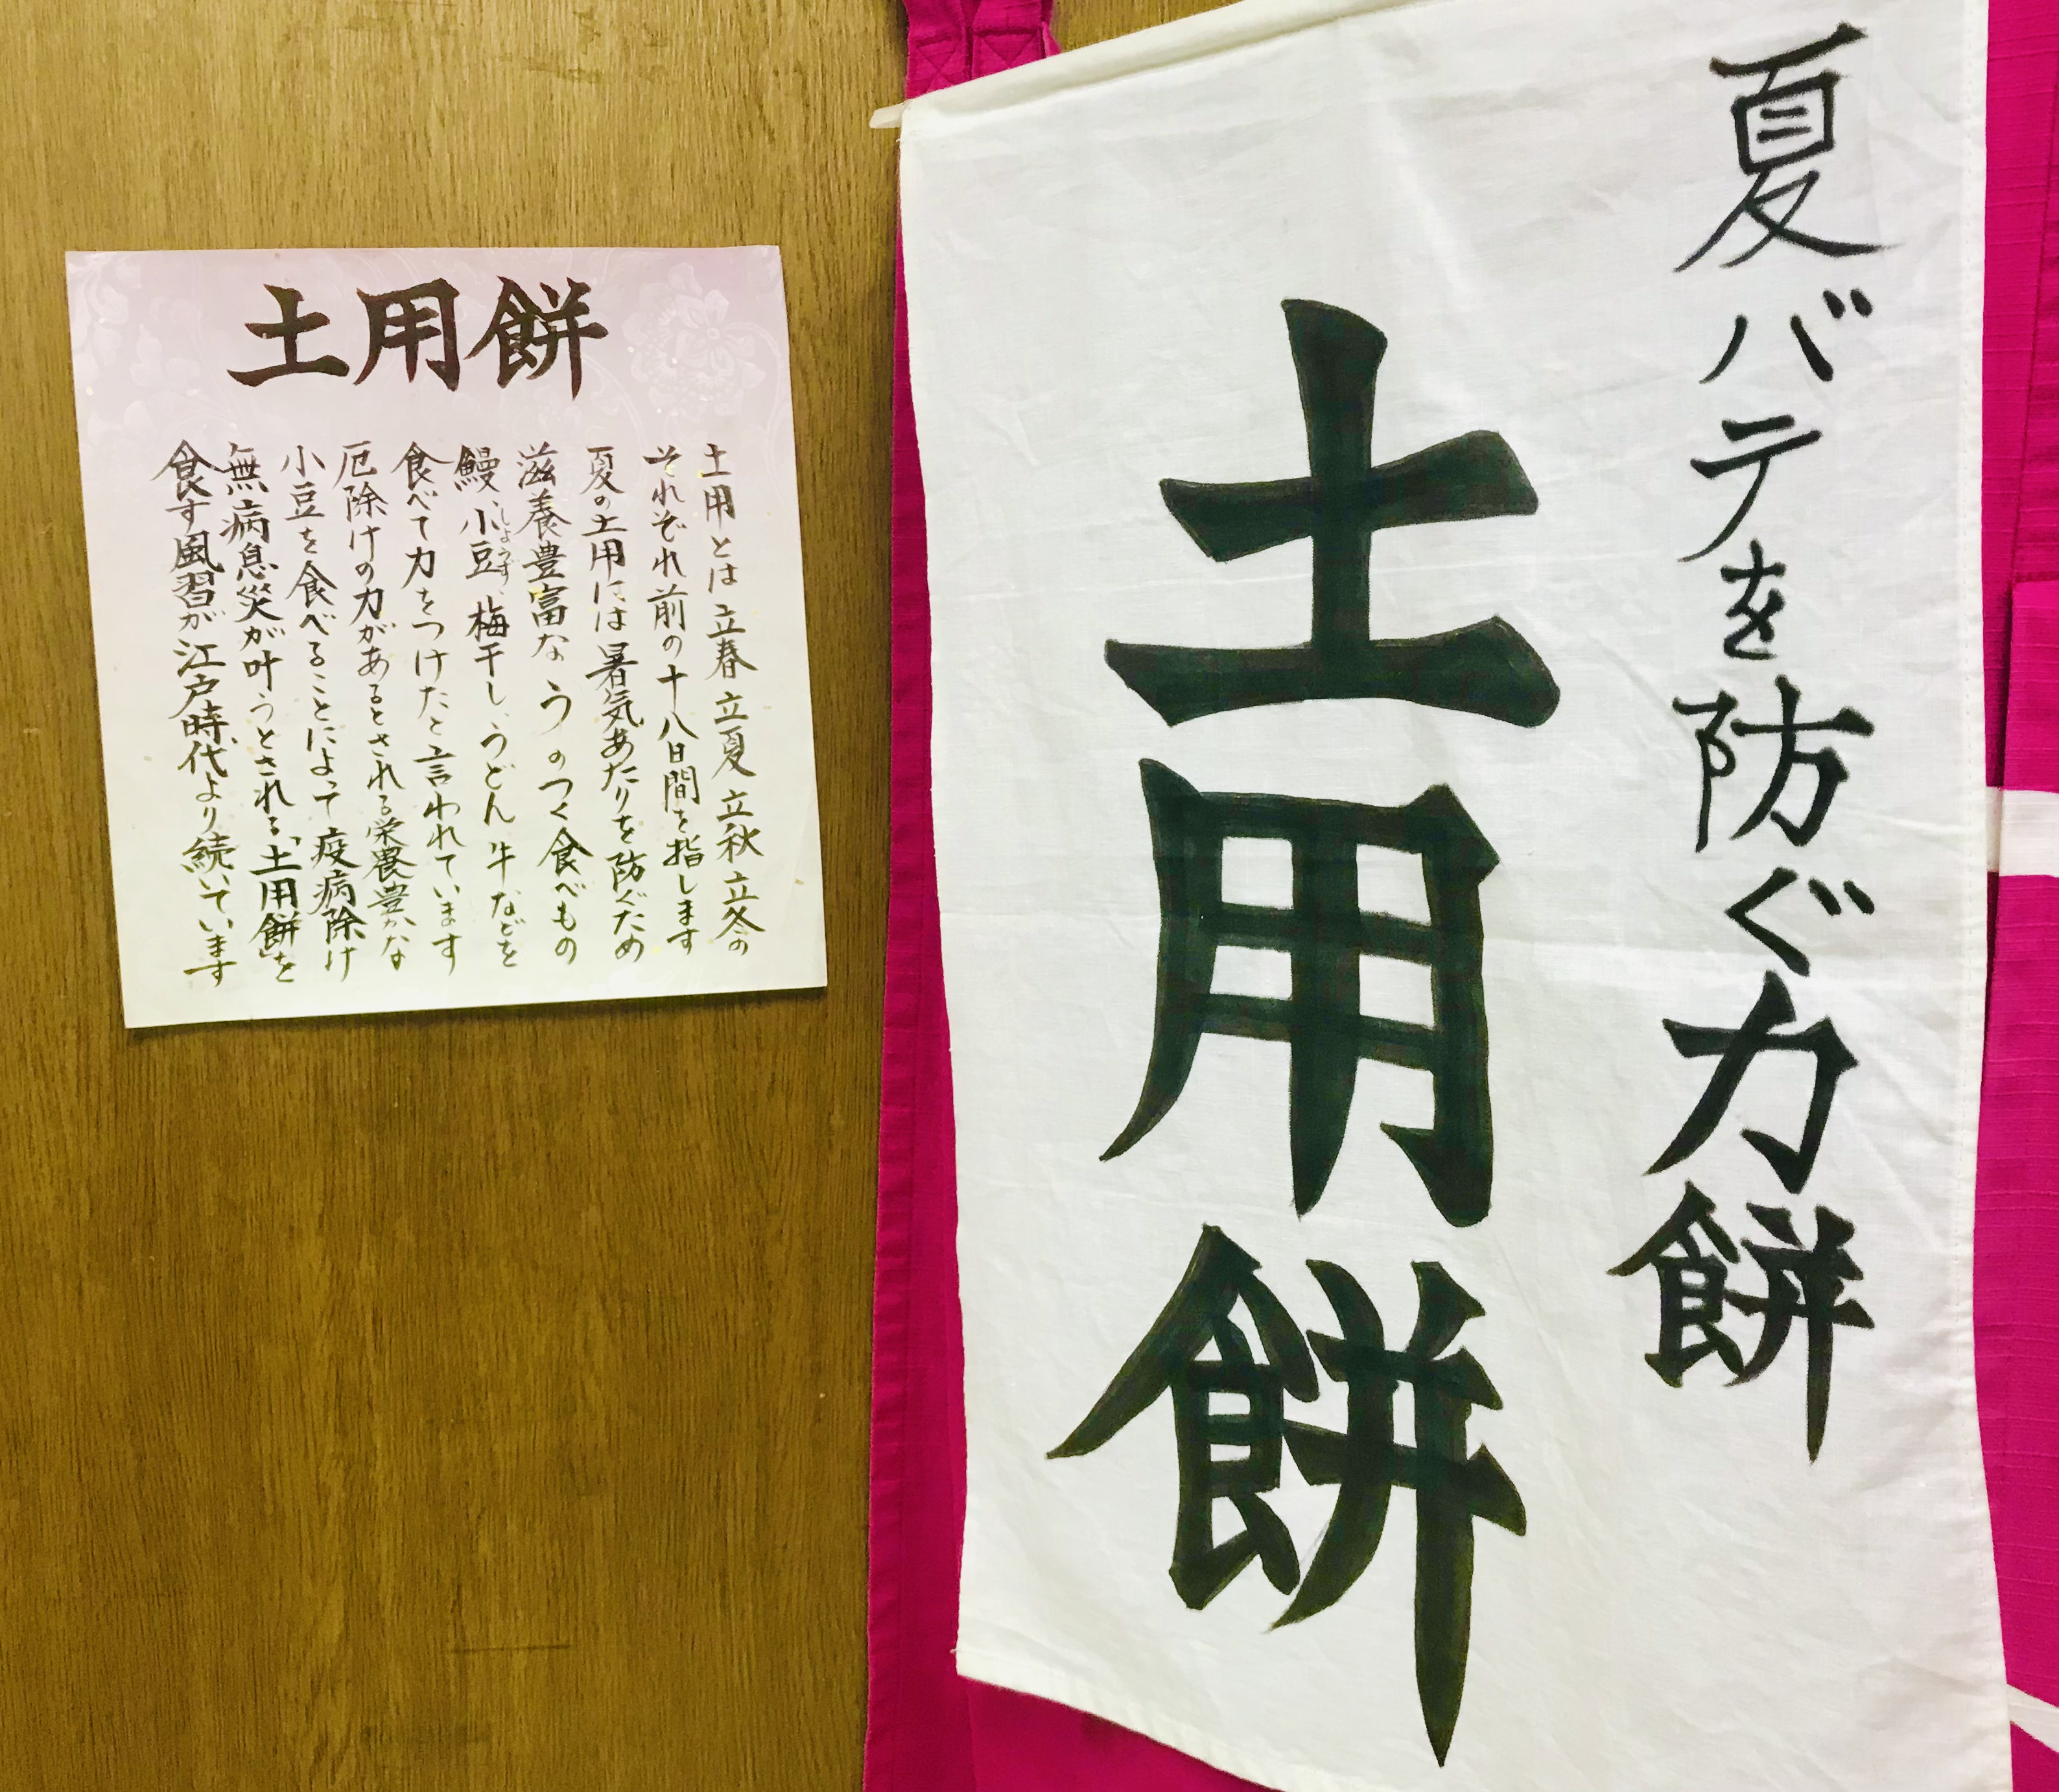 夏バテを防ぐ力餅
土用餅
土用餅
土用とは立春立夏立秋立冬の
それぞれ前の十八日間を指します
夏の土用には暑気あたりを防ぐため
滋養豊富な、うのつく食べもの
鰻、小豆、梅干し、うどん、牛などを
しょうず
食べて力をつけたと言われています
厄除けの力があるとされる栄養豊かな
小豆を食べることによって疫病除け
無病息災が叶うとされる「土用餅」を
食す風習が江戸時代より続いています